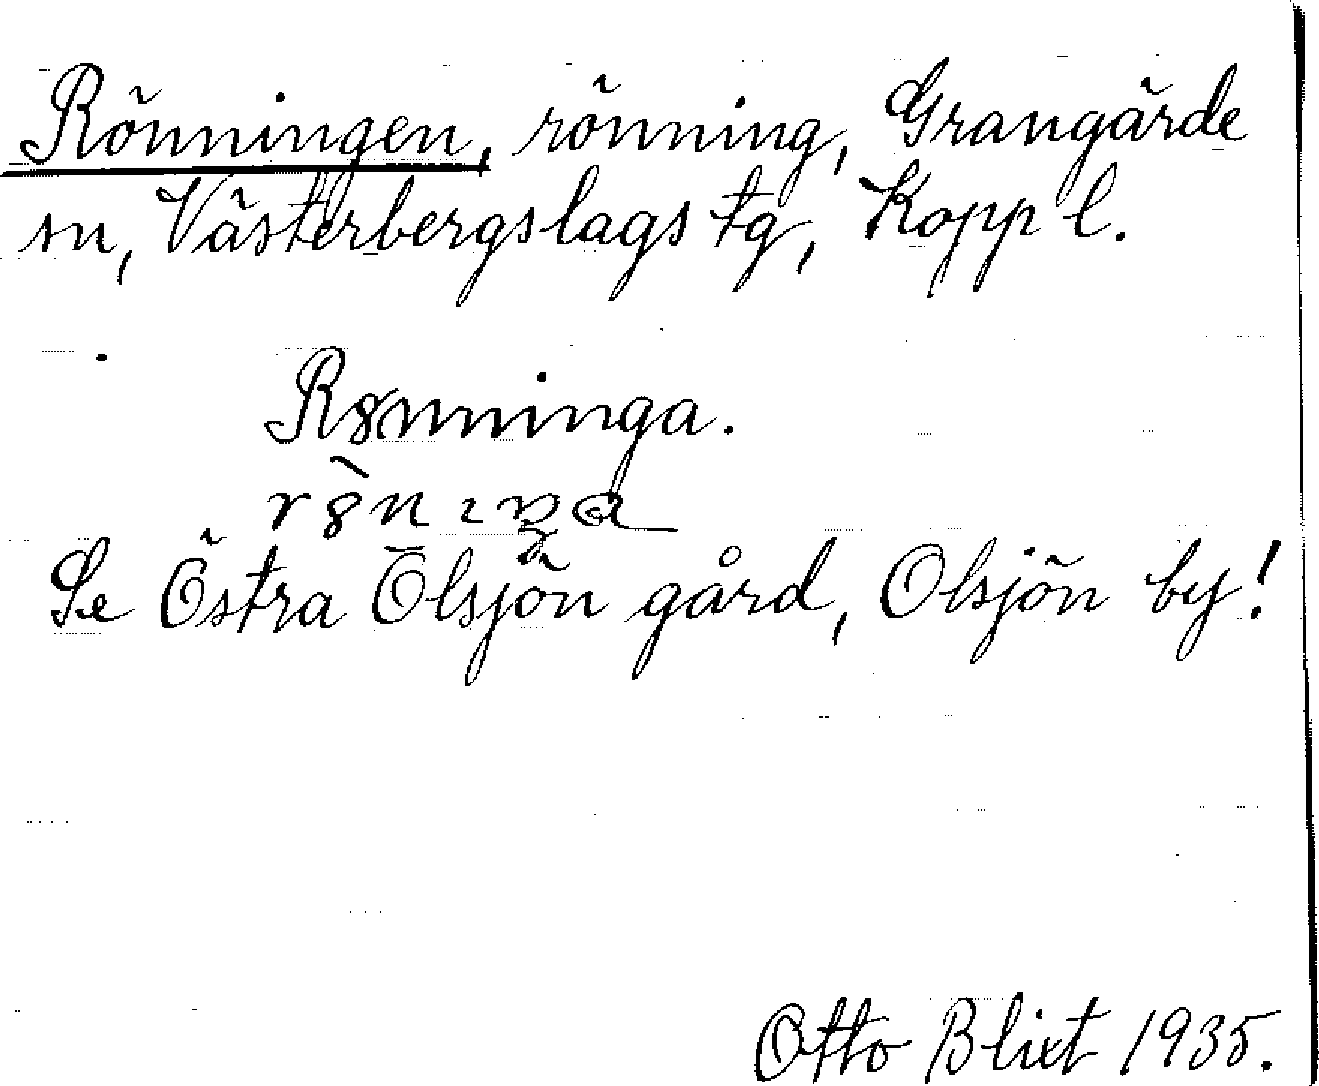 Rönningen, rönning, Grangärde
sn, Västerbergslags tg, Kopp l.
Rönninga.
Se Östra Ölsjön gård, Olsjön by!
Otto Blixt 1935.